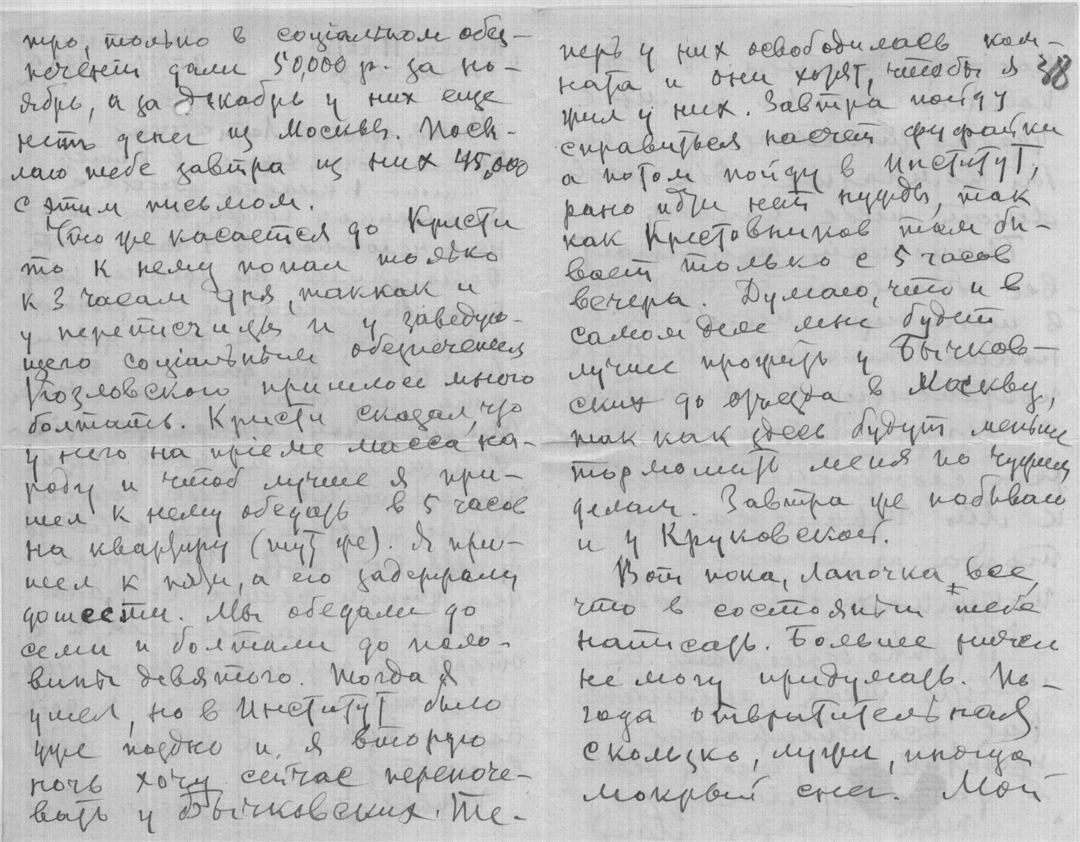 тро, только в социальном обез-
печении дали 50,000 р. за но-
ябрь, а за декабрь у них еще
нет денег из Москвы. Посы-
лаю тебе завтра из них 45,000
с этим письмом.
Что же касается до Кристи
то к нему попал только
к 3 часам дня, таккак и
у переписчицы и у заведую-
щего социальным обезпечением
Козловского пришлось много
болтать. Кристи сказал, что
у него на приеме масса на-
роду и чтоб лучше я при-
шел к нему обедать в 5 часов
на квартиру (тут же). Я при-
шел к пяти, а его задержали
дошести. Мы обедали до
семи и болтали до поло-
вины девятого. Когда я
ушел, но в Институт было
уже поздно и я вторую
ночь хочу сейчас переноче-
вать у Бычковских. Те-
38
перь у них освободилась ком-
ната и они хотят, чтобы я
жил у них. Завтра пойду
справиться насчет фуфайки
а потом пойду в Институт,
рано идти нет нужды, так
как Крестовников там бы-
вает только с 5 часов
вечера. Думаю, что и в
самом деле мне будет
лучше прожить у Бычков-
ских до отъезда в Москву,
так как здесь будут меньше
тормошить меня по чужим
делам. Завтра же побываю
и у Круковской.
Вот пока, Лапочка, все,
что в состоянии тебе
написать. Больше ничего
не могу придумать. По-
года отвратительная
скользко, лужи, иногда
мокрый снег. Мой